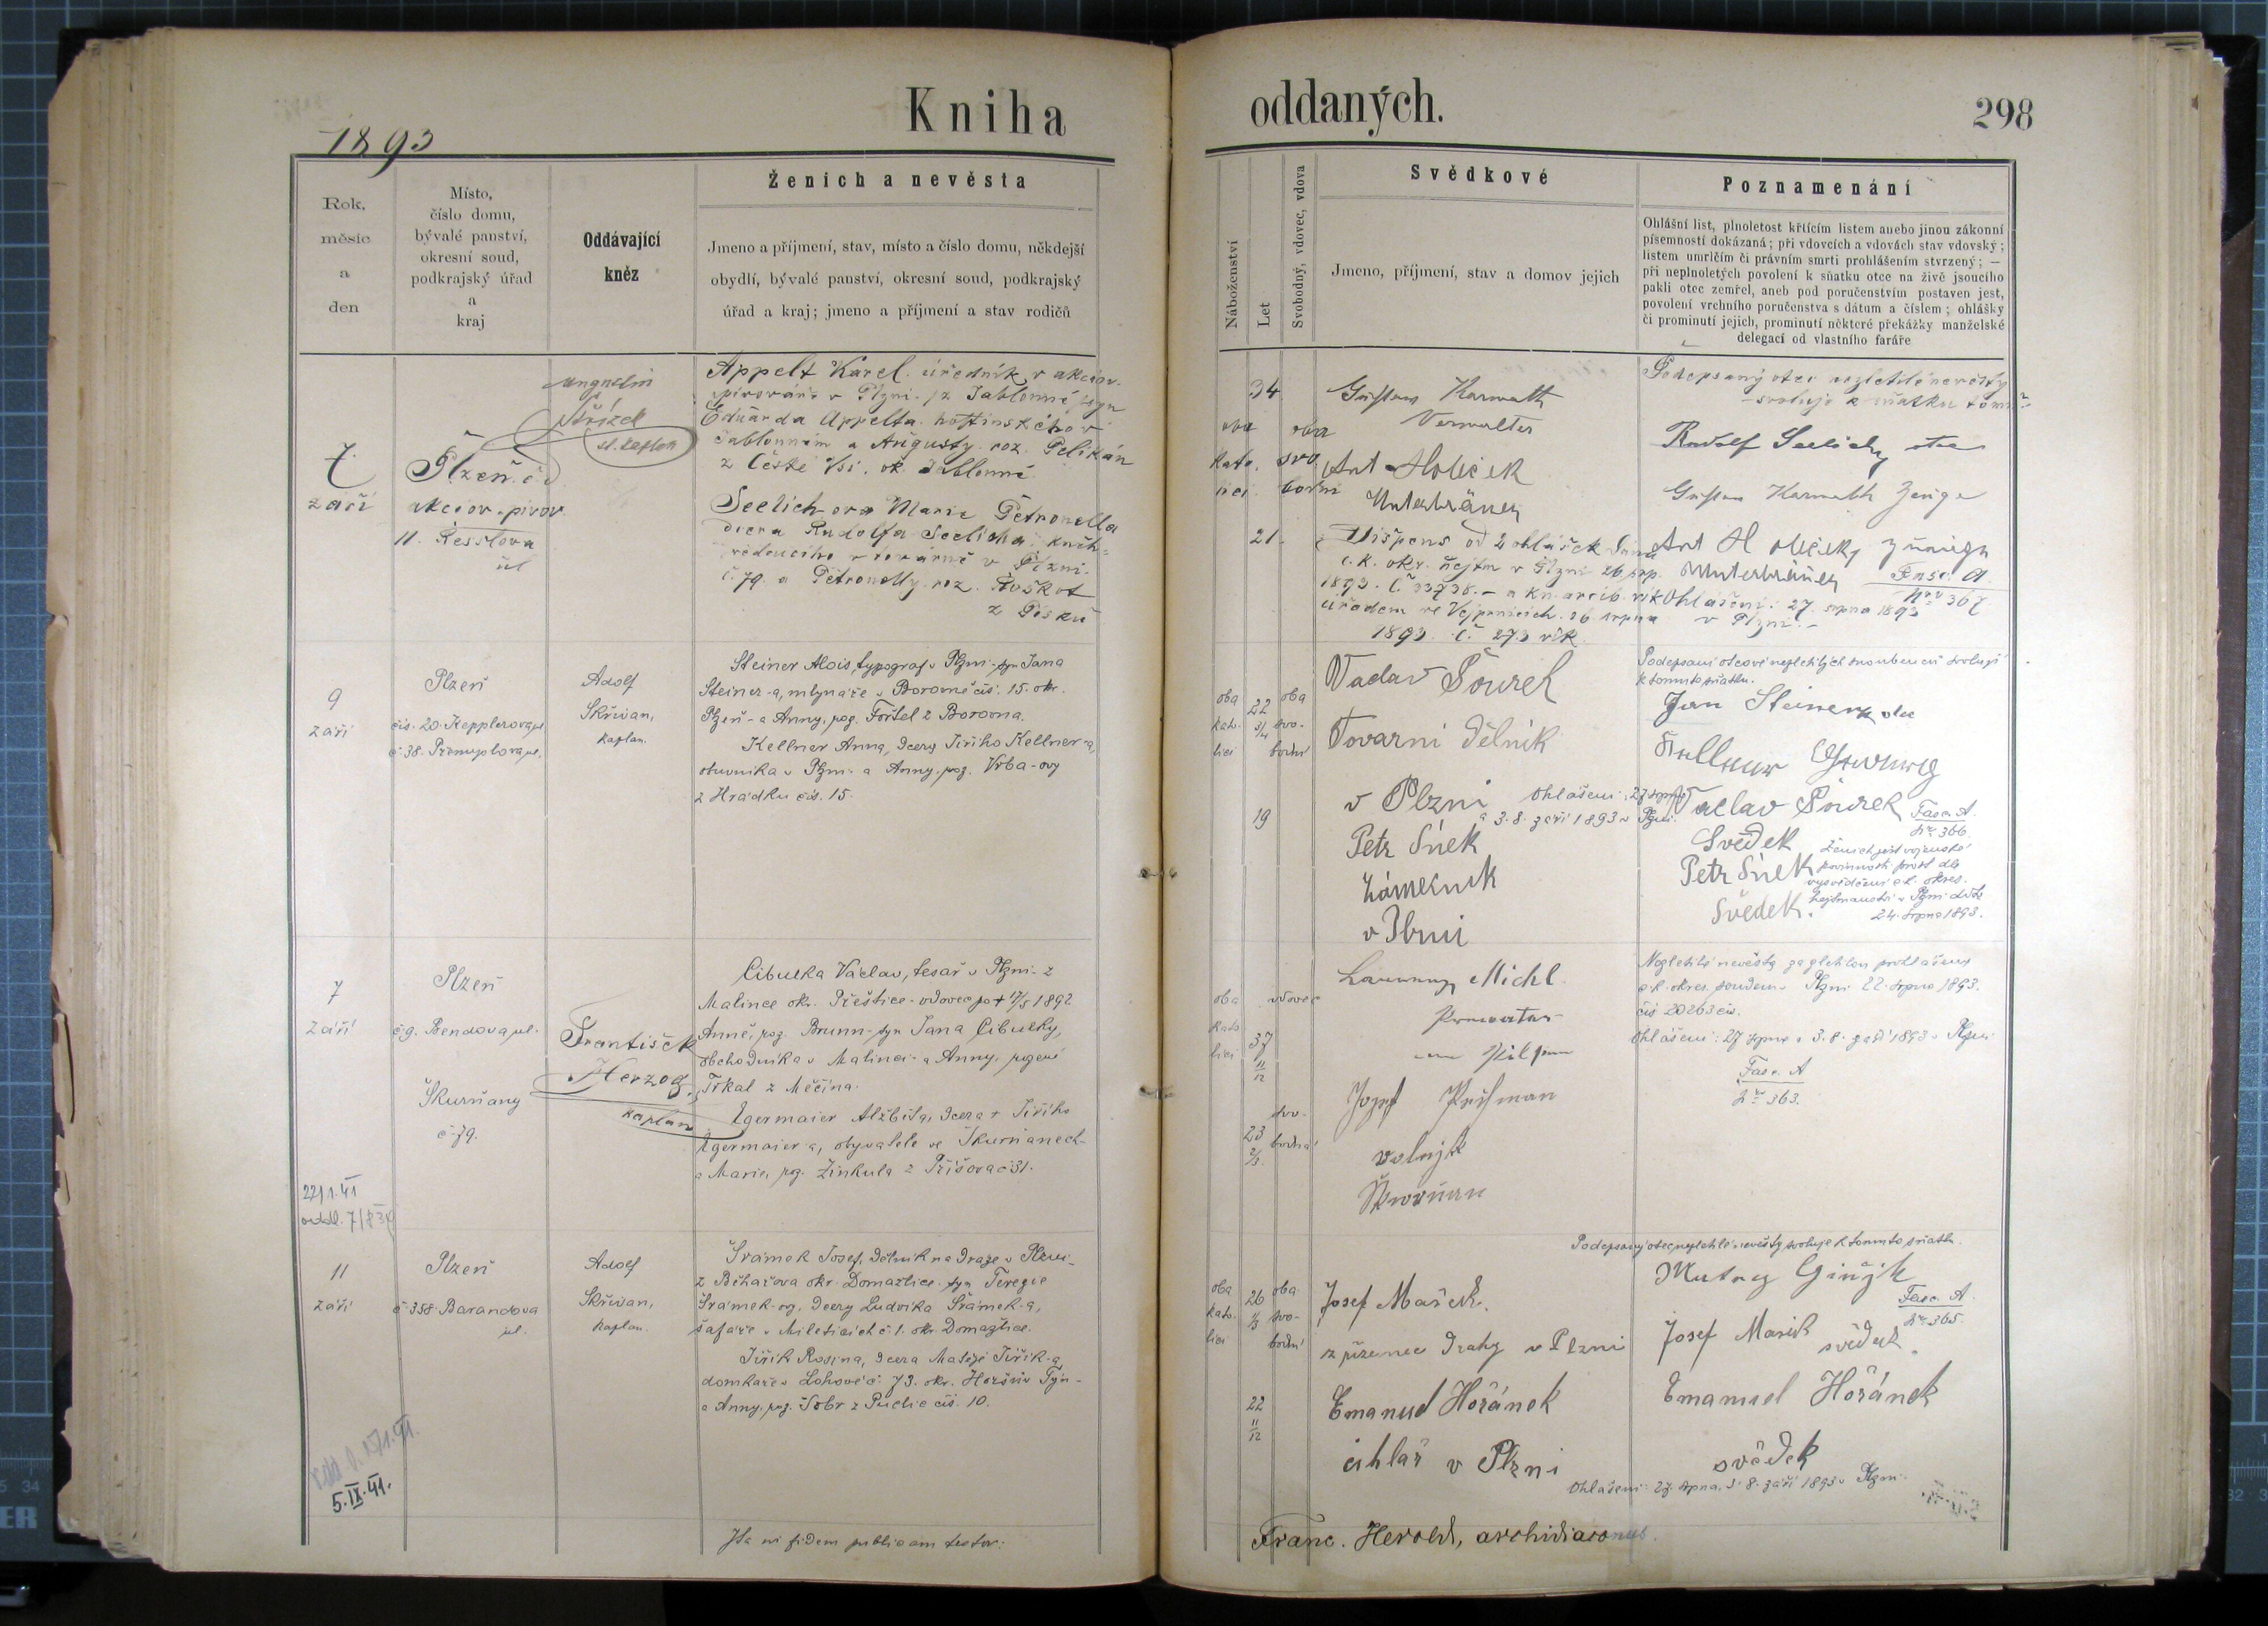 Kniha
oddaných.
298
1893
Rok,
měsíc
a
den
Místo,
číslo domu,
bývalé panství,
okresní soud,
podkrajský úřad
a
kraj
Oddávající
kněz
Ženich a nevěsta
Jmeno a příjmení, stav, místo a číslo domu, někdejší
obydlí, bývalé panství, okresní soud, podkrajský
úřad a kraj; jmeno a příjmení a stav rodičů
Náboženství
Let
Svobodný, vdovec, vdova
Svědkové
Jmeno, příjmení, stav a domov jejich
Poznamenání
Ohlášní list, plnoletost křticím listem anebo jinou zákonní
písemností dokázaná; při vdovcích a vdovách stav vdovský;
listem umrlčím či právním smrti prohlášením stvrzený; —
při neplnoletých povolení k sňatku otce na živě jsoucího
pakli otec zemřel, aneb pod poručenstvím postaven jest,
povolení vrchního poručenstva s dátum a číslem; ohlášky
či prominutí jejich, prominutí některé překážky manželské
delegací od vlastního faráře
7.
září
Plzeň
akciov. pivov.
11. Resslova
ul
Střízek
st. kaplan
Appelt Karel. úředník v akciov.
pivováře v Plzni. z Jablonné syn
Eduarda Appelta hostinského v
Jablonném a Augusty. roz. Pelikán
z České Vsi. ok. Jablonné
Seelich-ova Marie Petronella
dcera Rudolfa Seelicha knih-
vedoucího v továrně v Plzni
č. 79. a Petronelly. roz. Koškot
z Písku
oba
kato.
lici
34
21.
oba
svo
bodni
Gustav Karmath
Verwalter
Ant Holeček
Unterbräuer
Dispens od 2 ohlášek
c.k. okr. hejtm v Plzni 26 srp.
1893. č. 33738. - a kn. arcib. vik
úřadem ve Vejprnicích. 26. srpna
1893. č. 273 vik.
Podepsaný otec nezletilé nevěsty
svoluje k sňatku tomu
Rudolf Seelich otec
Gustav Karmath Zeuge
Ant Holeček, Zeuge
Unterbräuer
Fasc. A.
Nro 367
Ohlášení: 27. srpna 1893
v Plzni. -
9
září
Plzeň
čís. 20. Kepplerova ul.
č. 38. Přemyslova ul.
Adolf
Skřivan,
kaplan.
Steiner Alois, typograf v Plzni - syn Jana
Steiner-a, mlynáře v Borovně čís. 15. okr.
Plzeň - a Anny, roz. Fořtel z Borovna.
Kellner Anna, dcera Jiřího Kellner-a,
obuvníka v Plzni - a Anny, roz. Vrba-ovy
z Hrádku čís. 15.
oba
kato.
lici
22
3/4
19
oba
svo-
bodni
Václav Šourek
Tovarni Dělnik
v Plzni
Ohlášení: 27 srpna
a 3. 8. září 1893 v Plzni.
Petr Šnek
Zámečnik
v Plzni
Podepsaní otcové nezletilých snoubenců svolují
k tomuto sňatku.
Jan Steiner otec
Kellner Georg
Václav Šourek
Svědek
Petr Šnek
Švedek.
Fasc. A.
Nro 366.
Ženich jest vojenské
povinnosti prost dle
vysvědčení c.k. okres.
hejtmanství v Plzni ddto
24. srpna 1893.
7
září
Plzeň
č. 9. Bendova ul.
Škurňany
č. 79.
František
Herzog,
kaplan
Cibulka Václav, tesař v Plzni - z
Malince okr. Přeštice - vdovec po † 17/5 1892
Anně, roz. Brunn - syn Jana Cibulky,
obchodníka v Malinci - a Anny, rozené
Trkal z Měčína.
Egermaier Alžběta, dcera † Jiřího
Egermaier-a, obyvatele ve Škurňanech -
a Marie, roz. Zinkula z Příšova č. 31.
22/1. 41
oba
kato
lici
37
11/12
23
2/3.
vdovec
svo-
bodná
Michl
Josef
Škurňan
Nezletilá nevěsta za zletilou prohlášena
c.k. okres. soudem v Plzni 22. srpna 1893.
čís 20263 civ.
Ohlášení: 27 srpna a 3. 8. září 1893 v Plzni
Fasc. A
Nro 363.
11
září
Plzeň
č. 358. Barandova
ul.
Adolf
Skřivan,
kaplan.
Šrámek Josef, dělník na dráze v Plzni -
z Běhařova okr. Domažlice. syn Terezie
Šrámek-ov, dcery Ludvíka Šrámek-a,
šafáře v Mileticích č. 1. okr. Domažlice.
Jiřík Rosina, dcera Matěje Jiřík-a,
domkaře v Lohově č. 73. okr. Horšův Týn -
a Anny, roz. Šobr z Puclic čís. 10.
5.IX.41.
oba
kato.
lici
26
1/3
22
11/12
oba
svo-
bodni
Josef Mašek.
zřízenec Drahy v Plzni
Emanuel Hořánek
cihlář v Plzni
Podepsaný otec nezletilé nevěsty svoluje k tomuto sňatku.
Josef Mašek
svědek.
Fasc. A.
Nro 365.
Emanuel Hořánek
svědek
Ohlášení: 27. srpna. 3. 8. září 1893 v Plzni
Ita in fidem publicam testor:
Franc. Herold, archidiaconus.